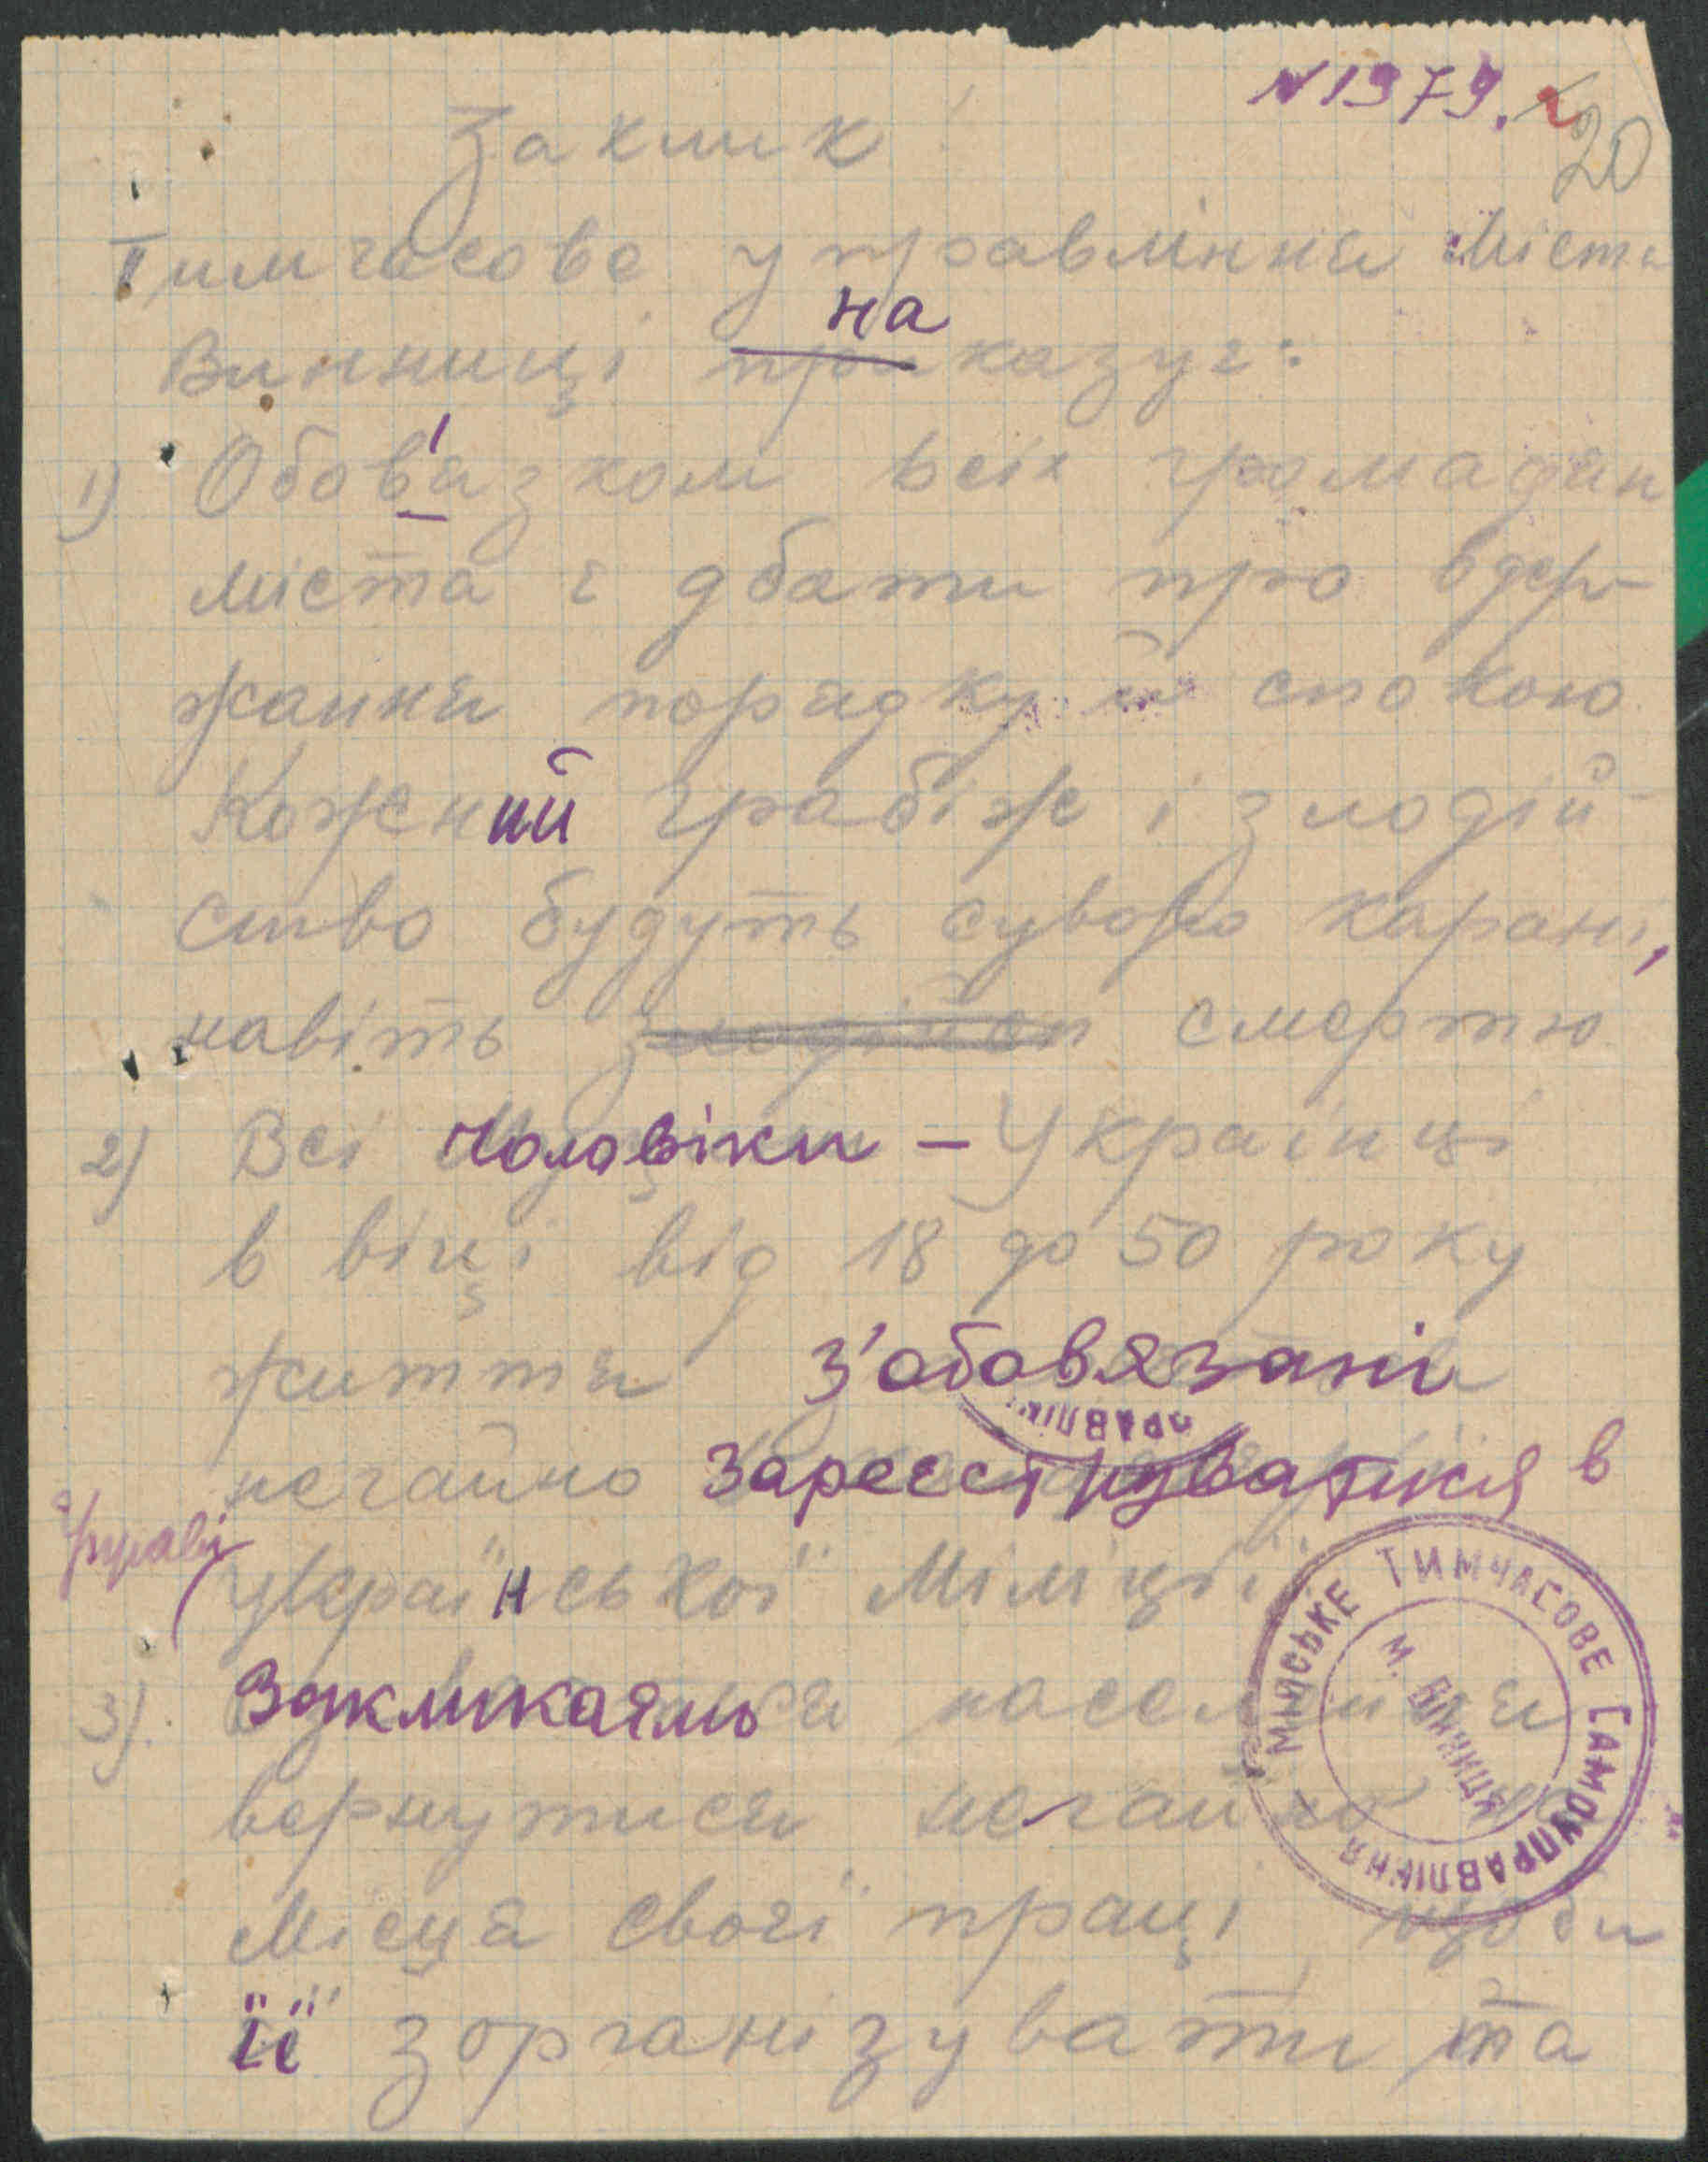 N 1979.
20
Заклик
Тимчасове управління Міста
Винниці на казує:
1) Обов'язком всіх громадян
міста є дбати про вдер-
жання порядку й спокою
Кожний грабіж і злодій-
ство будуть суворо карані,
навіть злодійсп смертю
2) Всі чоловіки – Українці
в віці від 18 до 50 року
життя з'обовязані
негайно зареєструватися в
управі
Української Міліції
3). Закликаємо населення
вернутися негайно на
Місця своєї праці щоби
її зорганізувати та
ПРАВЛІН
МІЙСЬКЕ ТИМЧАСОВЕ САМОУПРАВЛІННЯ
М. ВІННИЦЯ